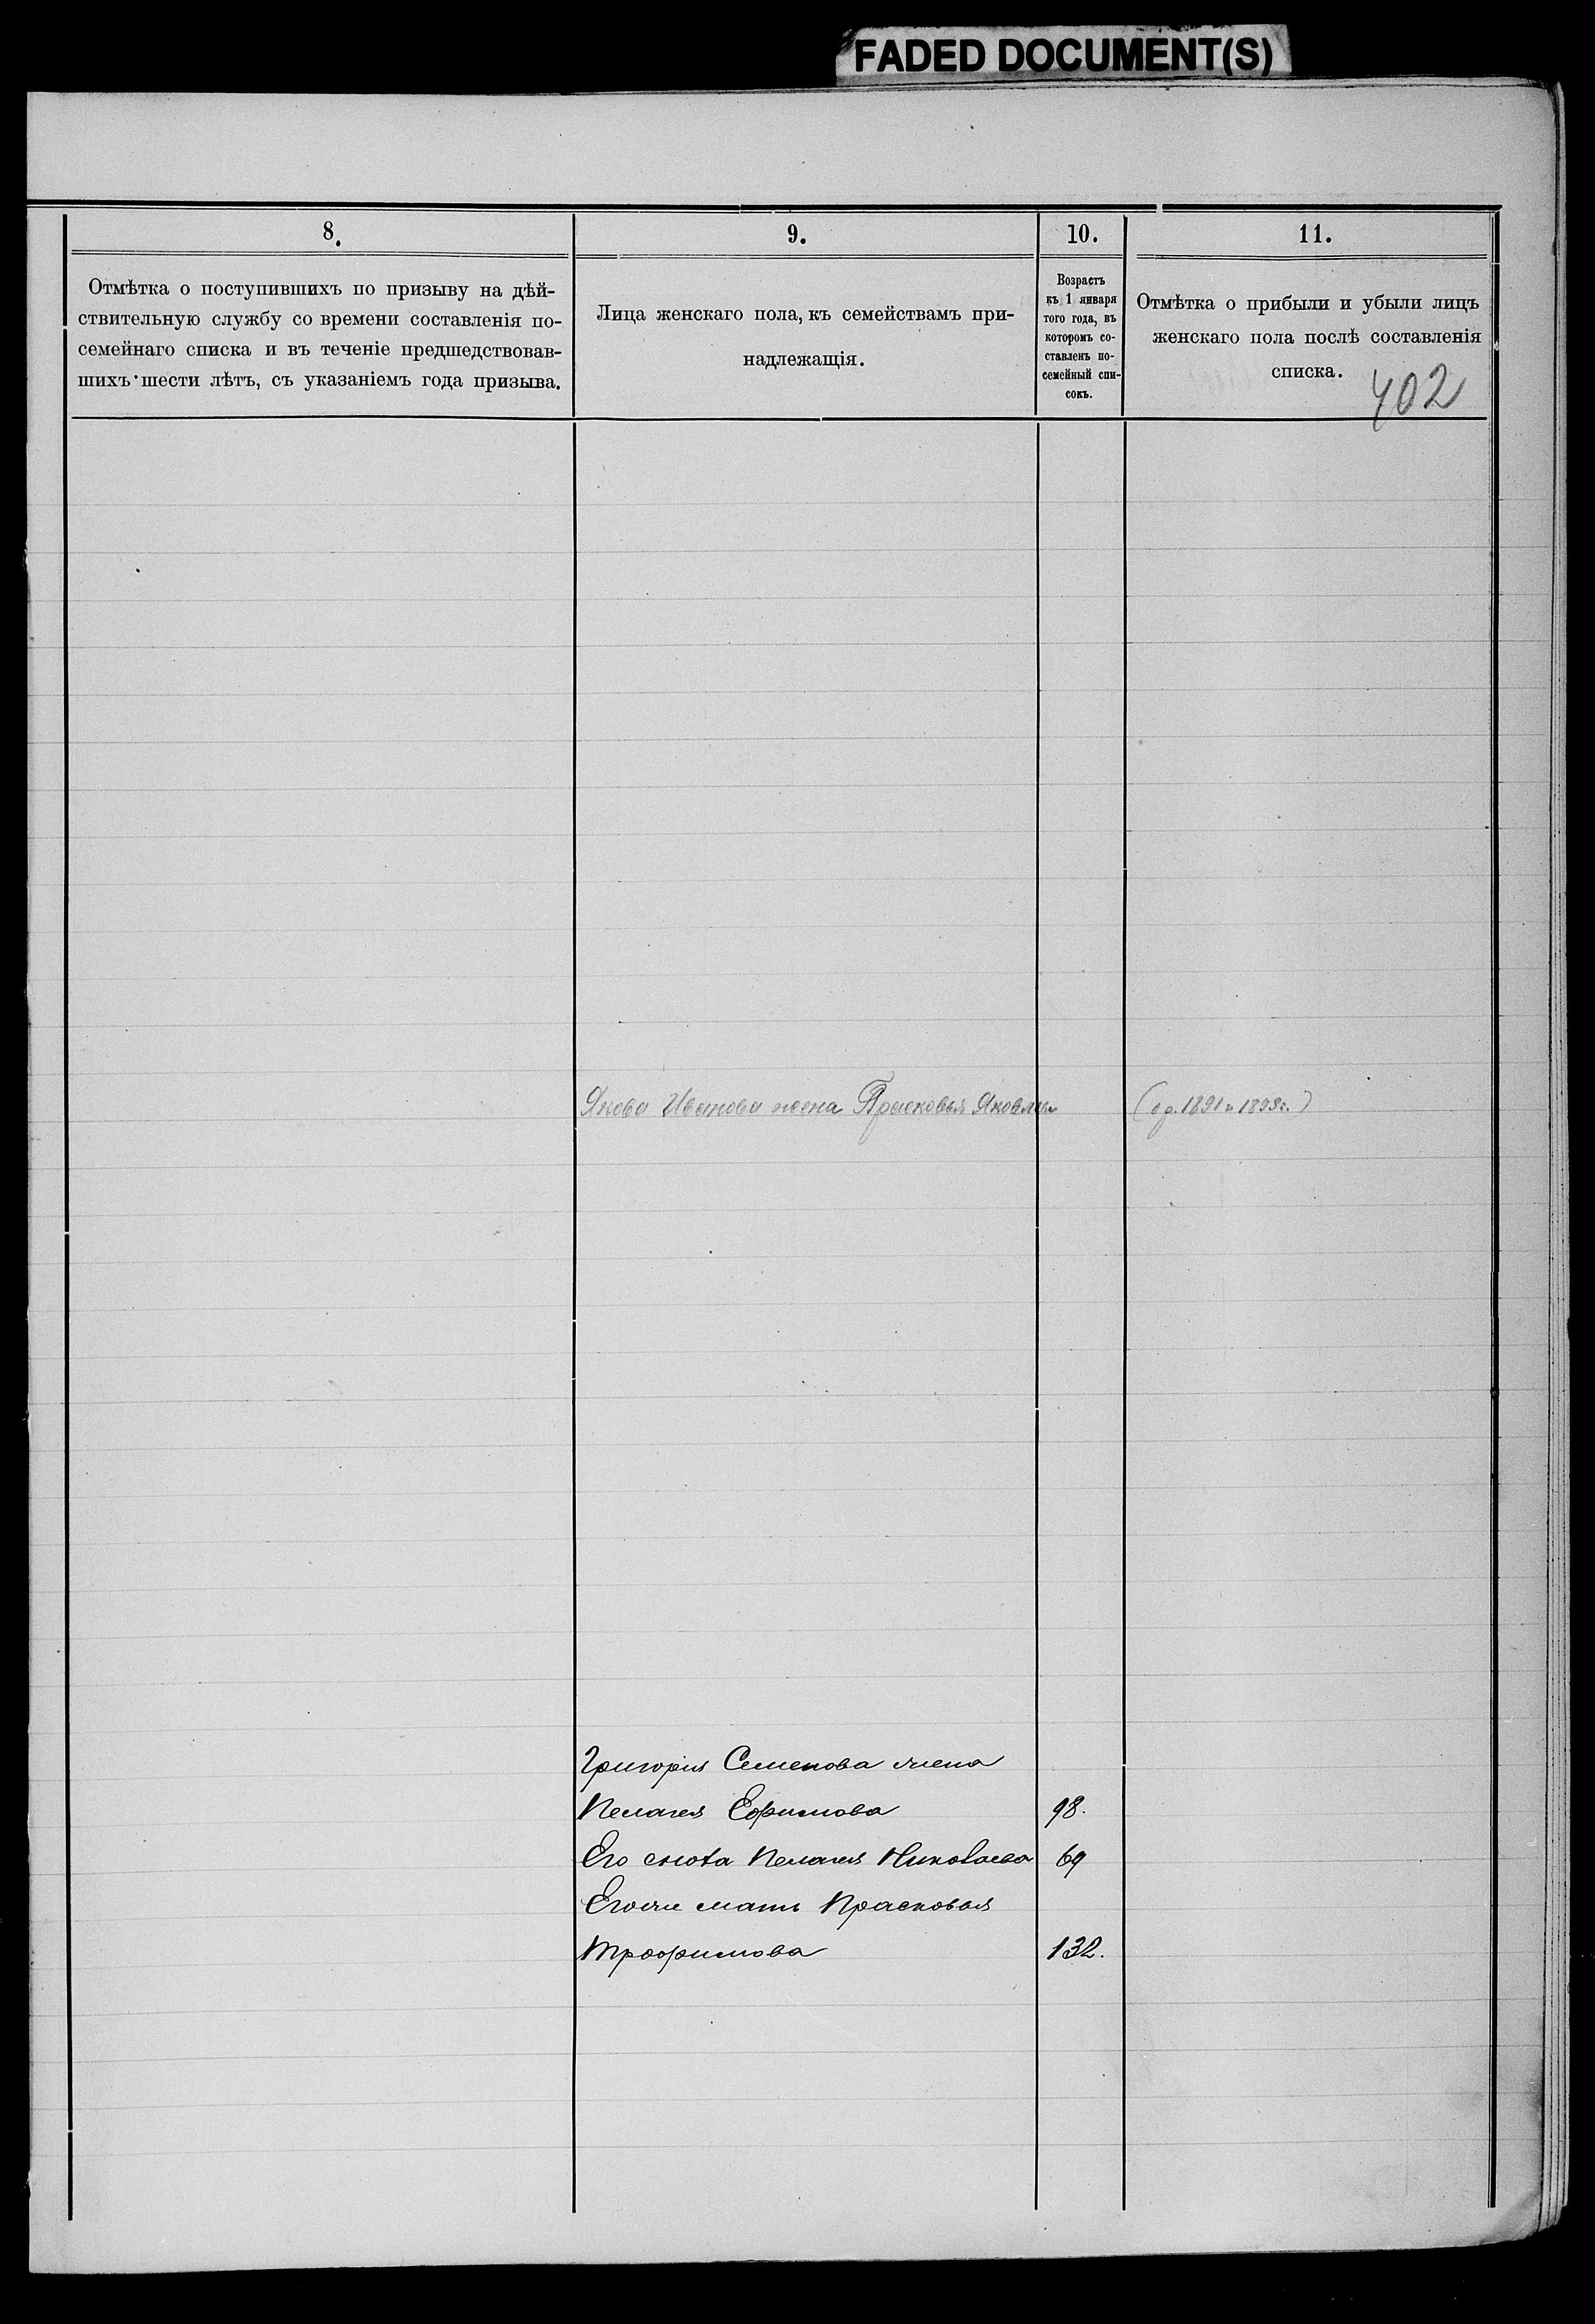 FADED DOCUMENT(S)
8.
Отмѣтка о поступившихъ по призыву на дѣй-
ствительную службу со времени составленія по-
семейнаго списка и въ теченіе предшедствовав-
шихъ шести лѣтъ, съ указаніемъ года призыва.
9.
Лица женскаго пола, къ семействамъ при-
надлежащія.
10.
Возрастъ
къ 1 января
того года, въ
которомъ со-
ставленъ по-
семейный спи-
сокъ.
11.
Отмѣтка о прибыли и убыли лицъ
женскаго пола послѣ составленія
списка.
402
Якова Иванова жена Прасковья Яковлева (1891 1893г.)
Григорія Семенова жена
Пелагея Ефимова 98.
Его сноха Пелагея Николаева 69
Его же мать Прасковья
Трофимова 132.